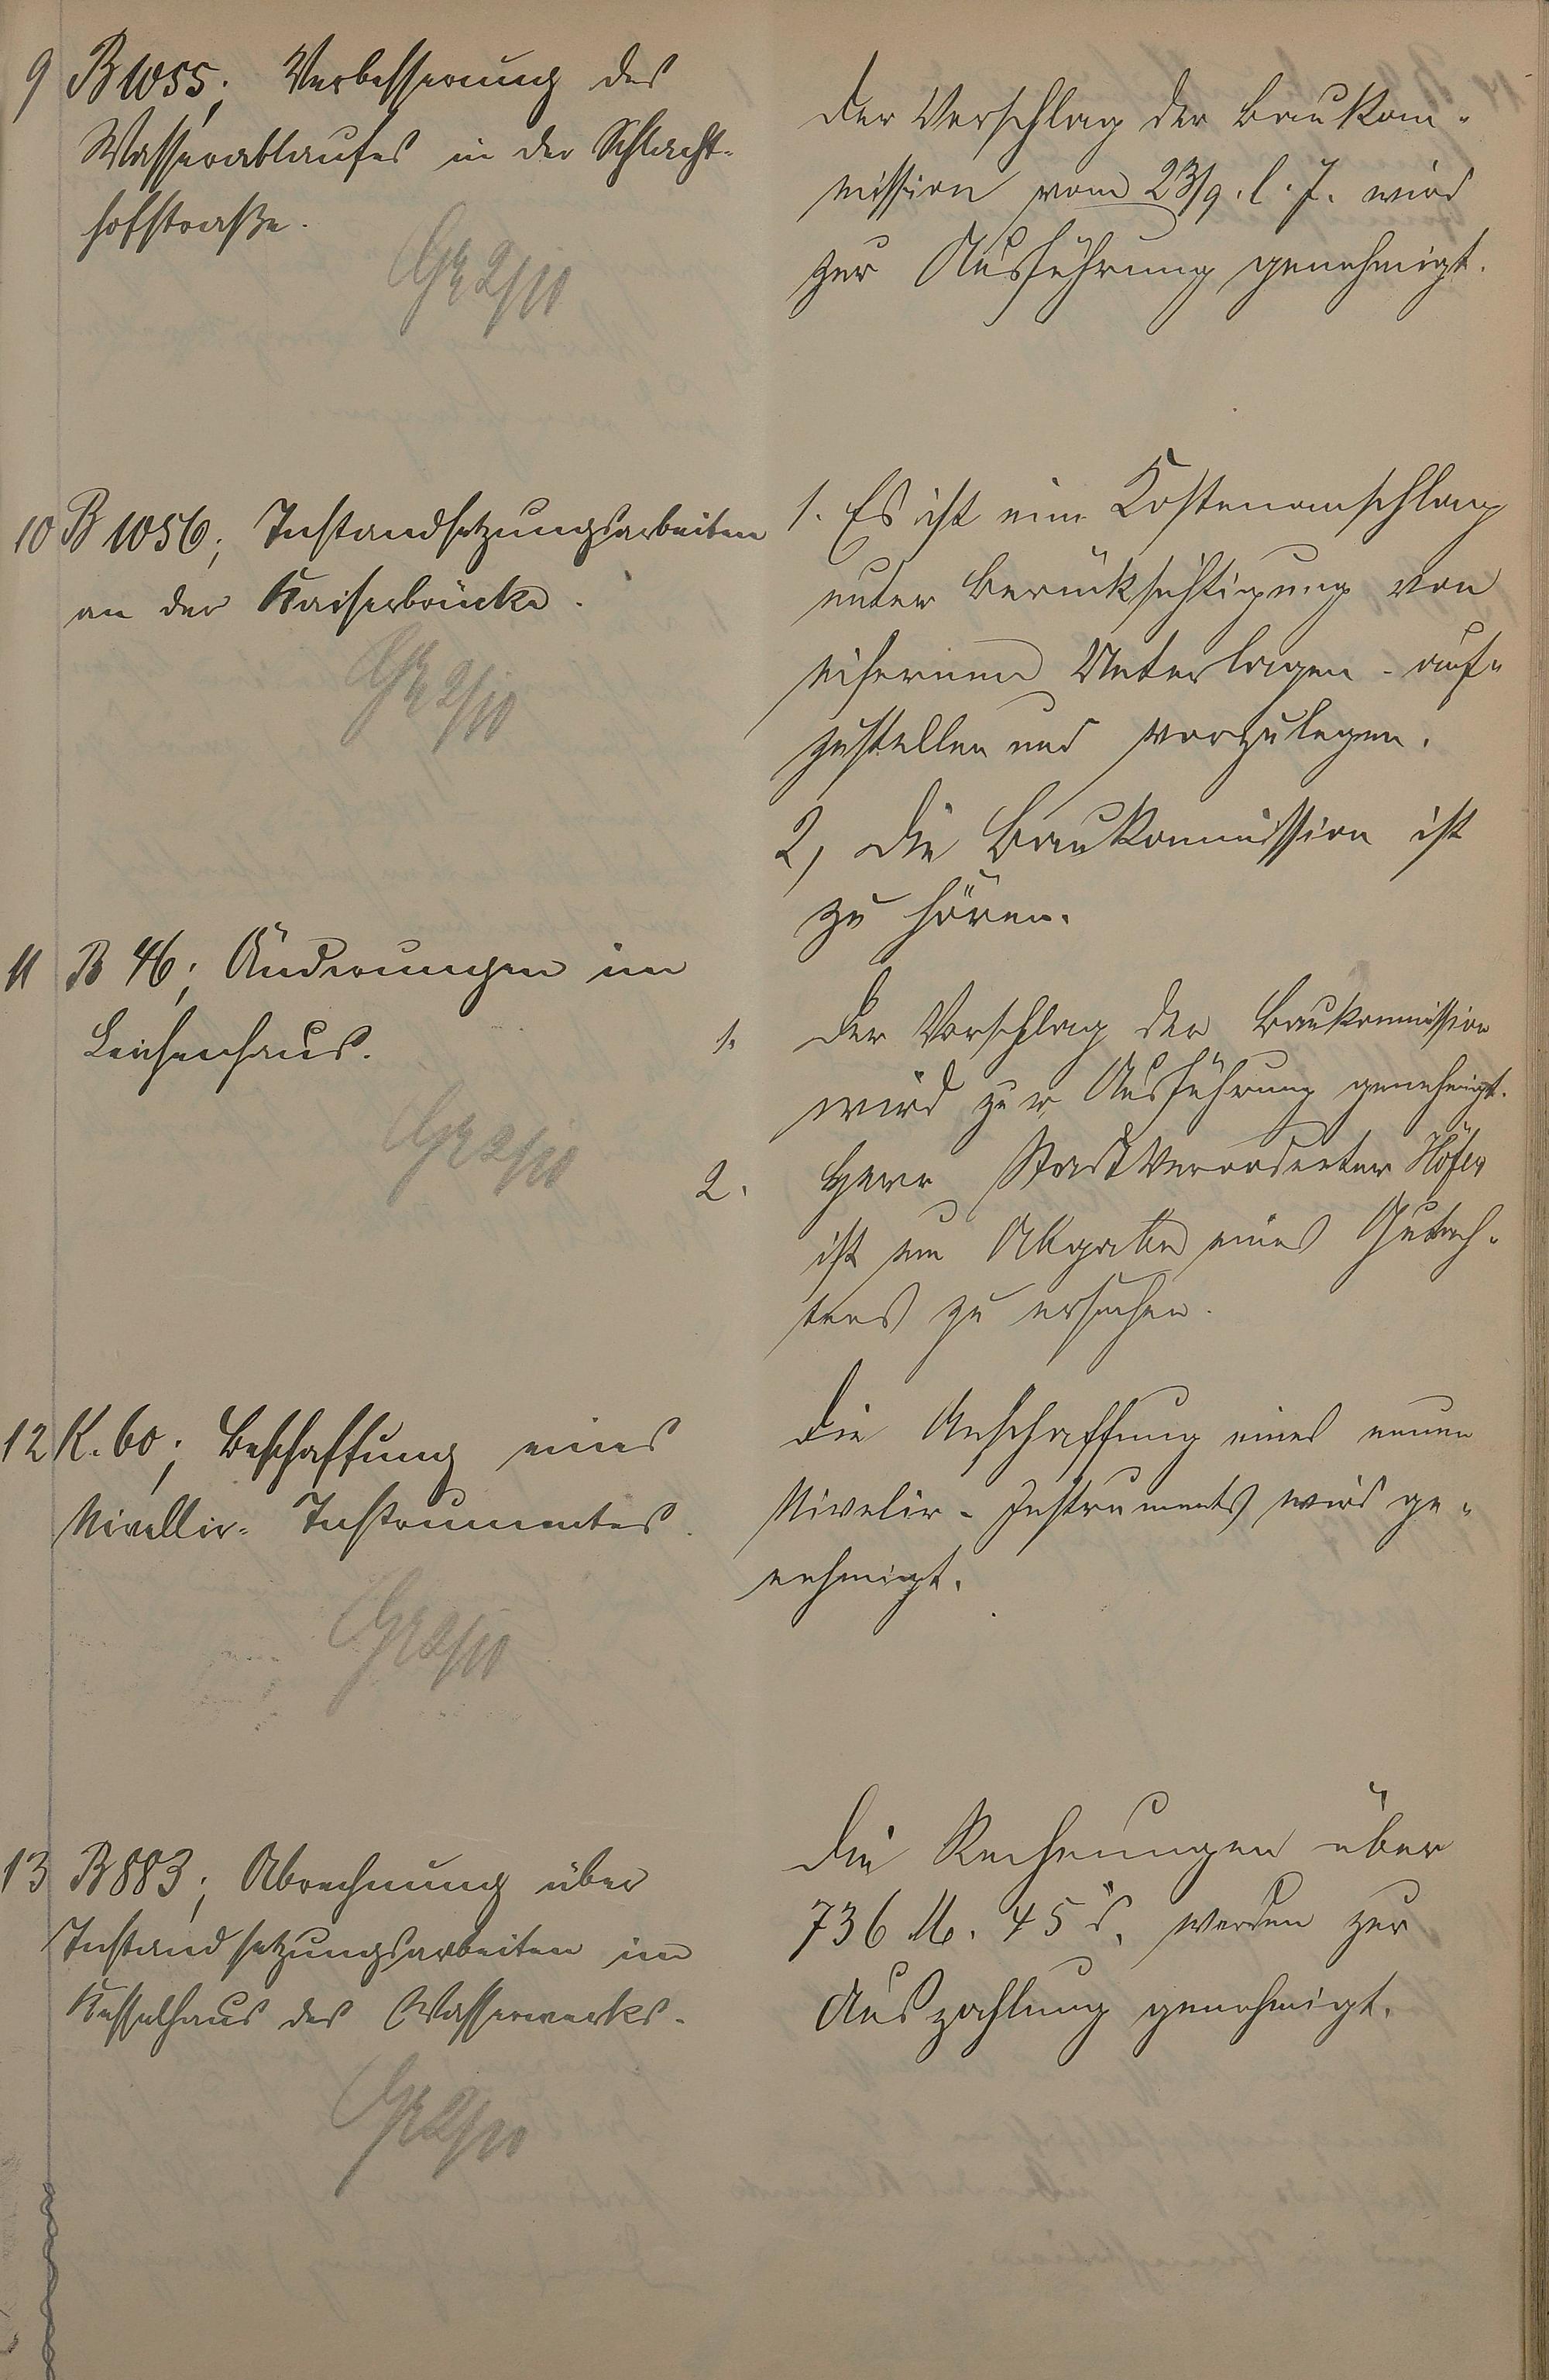 9 B 1055; Verbesserung des
Wasserablaufes in der Schlacht-
hofstraße.
Gr 2/10
Der Vorschlag der Baukom-
mission vom 23/9. l. J. wird
zur Ausführung genehmigt.
10 B 1056; Instandsetzungsarbeiten
an der Kaiserbrücke.
Gr 2/10
1. Es ist ein Kostenanschlag
unter Berücksichtigung von
eisernen Unterlagen auf-
zustellen und vorzulegen.
2, Die Baukommission ist
zu hören.
11 B 46; Änderungen im
Leichenhaus.
Gr 2/10
1. Der Vorschlag der Baukommission
wird zur Ausführung genehmigt.
2. Herr Stadtverordneter Höfer
ist um Abgabe eines Gutach-
tens zu ersuchen.
12 K. 60; Beschaffung eines
Nivellir-Instrumentes.
Gr 2/10
Die Anschaffung eines neuen
Nivelir-Instruments wird ge-
nehmigt.
13 B 883; Abrechnung über
Instandsetzungsarbeiten im
Kesselhaus des Wasserwerks.
Gr 2/10
Die Rechnungen über
736 M. 45 d. werden zur
Auszahlung genehmigt.